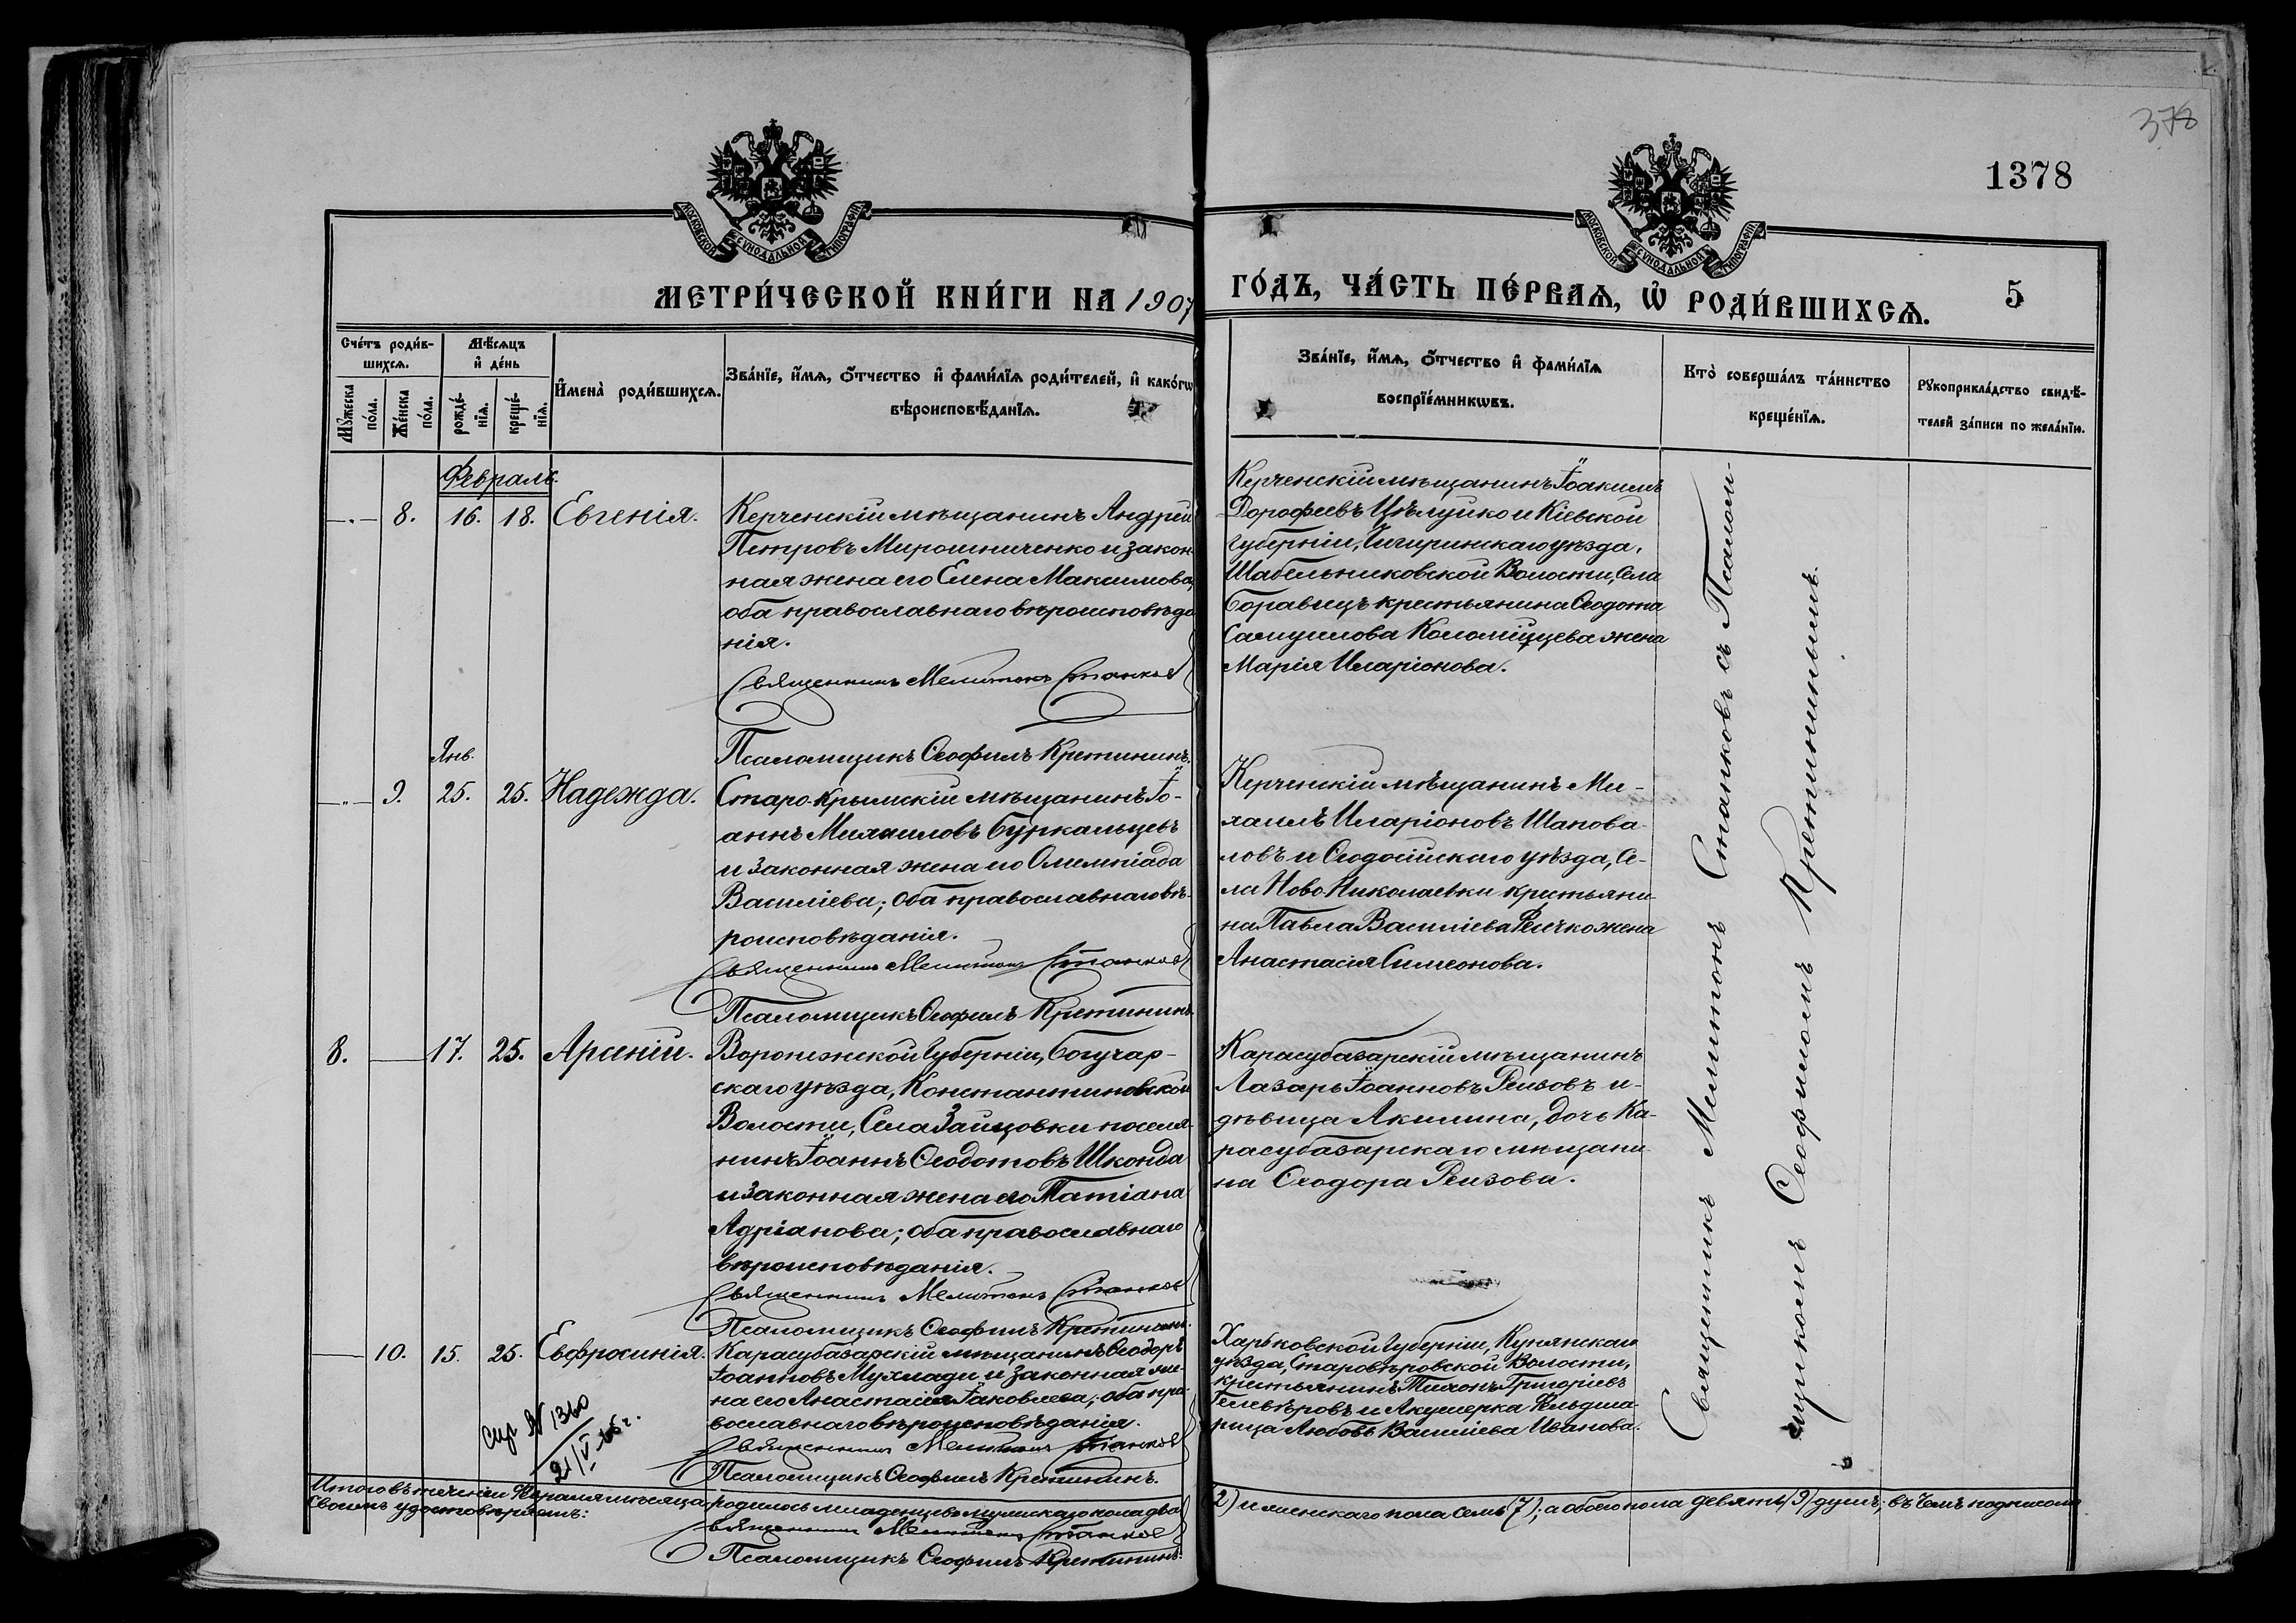 378
1378
МОСКОВСКОЙ СѴНОДАЛЬНОЙ ТИПОГРАФІИ
МОСКОВСКОЙ СѴНОДАЛЬНОЙ ТИПОГРАФІИ
МЕТРИ́ЧЕСКОЙ КНИ́ГИ НА 1907
ГО́ДЪ, ЧА́СТЬ ПЕ́РВАѦ, Ѡ҆ РОДИ́ВШИХСѦ.
5
Сче́тъ роди́в-
шихсѧ.
Мꙋ́жеска
по́ла.
Же́нска
по́ла.
Мѣ́сѧцъ
и҆ де́нь
рожде́-
нїѧ.
креще́-
нїѧ.
И҆мена̀ роди́вшихсѧ.
Зва́нїе, и҆́мѧ, ѻ҆́тчество и҆ фами́лїѧ роди́телей, и҆ како́гѡ
вѣроисповѣ́данїѧ.
Зва́нїе, и҆́мѧ, ѻ҆́тчество и҆ фами́лїѧ
воспрїе́мникѡвъ.
Кто̀ соверша́лъ та́инство
креще́нїѧ.
Рꙋкоприкла́дство свидѣ́-
телей за́писи по жела́нїю.
Февраль.
8. 16. 18. Евгенія.
Керченскій мѣщанинъ Андрей
Петровъ Мирошниченко и закон-
ная жена его Елена Максимова,
оба православнаго вѣроисповѣда
нія.
Священникъ Мелитонъ Станковъ
Псаломщикъ Ѳеофилъ Кретининъ.
Керченскій мѣщанинъ Іоакимъ
Дорофеевъ Цѣлуйко и Кіевской
Губерніи, Чигиринскаго уѣзда,
Шабельниковской Волости, Села
Боравицъ крестьянина Ѳеодота
Самуилова Коломійцева жена
Марія Иларіонова.
Янв.
9. 25. 25. Надежда.
Старо-Крымскій мѣщанинъ Іо-
аннъ Михаиловъ Буркальцевъ
и законная жена его Олимпіада
Василіева; оба православнаго вѣ-
роисповѣданія.
Священникъ Мелитонъ Станковъ
Псаломщикъ Ѳеофилъ Кретининъ.
Керченскій мѣщанинъ Ми-
хаилъ Иларіоновъ Шапова-
ловъ и Ѳеодосійскаго уѣзда, Се-
ла Ново-Николаевки крестьяни-
на Павла Василіева жена
Анастасія Симеонова.
8. 17. 25. Арсеній.
Воронежской Губерніи, Богучар-
скаго уѣзда, Константиновской
Волости, Села Зайцовки поселя-
нинъ Іоаннъ Ѳеодотовъ Шконда
и законная жена его Татіана
Адріанова; оба православнаго
вѣроисповѣданія.
Священникъ Мелитонъ Станковъ
Псаломщикъ Ѳеофилъ Кретининъ.
Карасубазарскій мѣщанинъ
Лазарь Іоанновъ Реизовъ и
дѣвица Акилина, дочь Ка-
расубазарскаго мѣщани-
на Ѳеодора Реизова.
10. 15. 25. Евфросинія.
Карасубазарскій мѣщанинъ Ѳеодоръ
Іоанновъ Мухлади и законная же-
на его Анастасія Іаковлева; оба пра-
вославнаго вѣроисповѣданія.
Священникъ Мелитонъ Станковъ
Псаломщикъ Ѳеофилъ Кретининъ.
Харьковской Губерніи, Купянскаго
уѣзда, Старовѣровской Волости,
крестьянинъ Тихонъ Григоріевъ
и Акушерка Фельдше-
рица Любовь Василіева Иванова.
№ 1360
21/V
Священникъ Мелитонъ Станковъ съ Псалом-
щикомъ Ѳеофиломъ Кретининымъ.
Итого въ теченіи Февраля мѣсяца родилось младенцевъ мужскаго пола два
(2) и женскаго пола семь (7); а обоего пола девять (9) душъ; въ чемъ подписомъ
своимъ удостовѣряемъ:
Священникъ Мелитонъ Станковъ
Псаломщикъ Ѳеофилъ Кретининъ.